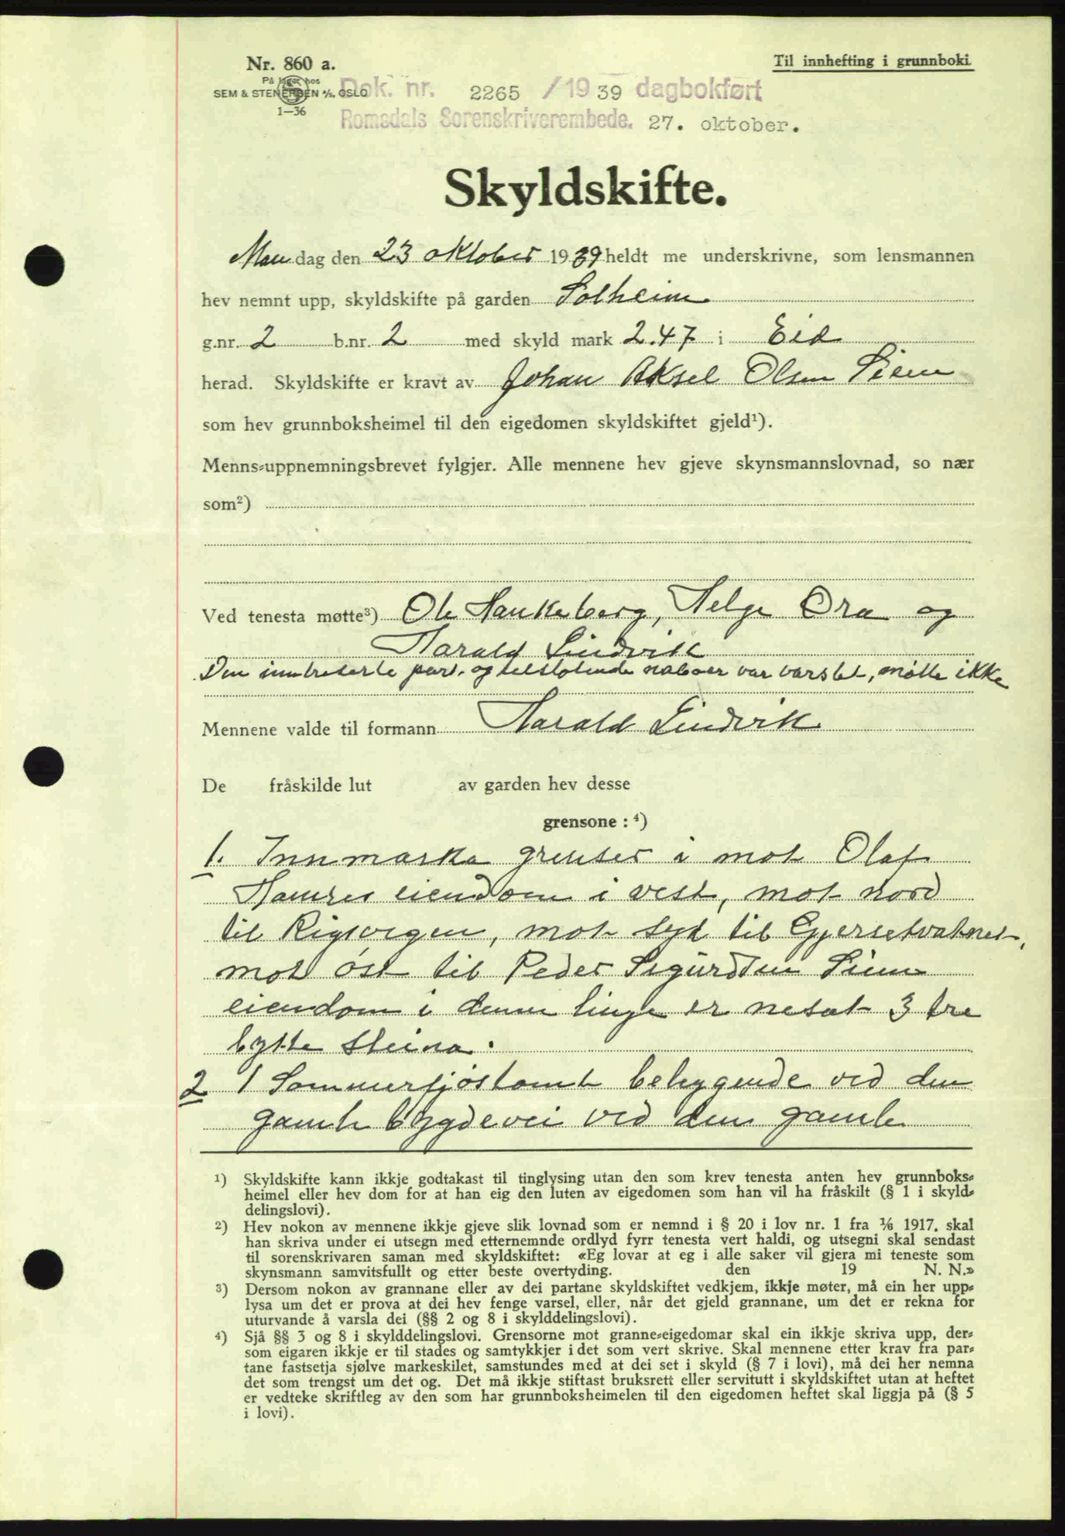 Nr. 860 a.
Til innhefting i grunnboki
På lager hos
SEM & STENERSEN A/S, OSLO
1—36
Dok. nr. 2265 /19 39 dagbokført
Romsdals Sorenskriverembede. 27. oktober.
Skyldskifte.
Mandag den 23 oktober 1939 heldt me underskrivne, som lensmannen
hev nemnt upp, skyldskifte på garden Solheim
g.nr. 2 b.nr. 2 med skyld mark 2.47 i Eid
herad. Skyldskifte er kravt av Johan Aksel Olsen Siem
som hev grunnboksheimel til den eigedomen skyldskiftet gjeld¹).
Menns-uppnemningsbrevet fylgjer. Alle mennene hev gjeve skynsmannslovnad, so nær
som²)
Ved tenesta møtte³) Ole Haukeberg, Helge Øra og
Harald Lindvik
Den interserte part. og tilstøtende naboer var varslet, møtte ikke
Mennene valde til formann Harald Lindvik
De fråskilde lut av garden hev desse
grensone : ⁴)
1. Innmarka grenser i mot Olaf
Hamres eiendom i vest, mot nord
til Rigsvegen, mot syd til Gjersetvatnet,
mot øst til Peder Sigurdsen Siem
eiendom i denne linje er nesat 3 tre
bytte steina.
2 1 Sommerfjøstomt behygende ved den
gamle bygdevei ved den gamle
¹) Skyldskifte kann ikkje godtakast til tinglysing utan den som krev tenesta anten hev grunnboks-
heimel eller hev dom for at han eig den luten av eigedomen som han vil ha fråskilt (§ 1 i skyld-
delingslovi).
²) Hev nokon av mennene ikkje gjeve slik lovnad som er nemnd i § 20 i lov nr. 1 fra 1/6 1917, skal
han skriva under ei utsegn med etternemnde ordlyd fyrr tenesta vert haldi, og utsegni skal sendast
til sorenskrivaren saman med skyldskiftet: «Eg lovar at eg i alle saker vil gjera mi teneste som
skynsmann samvitsfullt og etter beste overtyding. den 19 N. N.»
³) Dersom nokon av grannane eller av dei partane skyldskiftet vedkjem, ikkje møter, må ein her upp-
lysa um det er prova at dei hev fenge varsel, eller, når det gjeld grannane, um det er rekna for
uturvande å varsla dei (§§ 2 og 8 i skylddelingslovi).
⁴) Sjå §§ 3 og 8 i skylddelingslovi. Grensorne mot granne-eigedomar skal ein ikkje skriva upp, der-
som eigaren ikkje er til stades og samtykkjer i det som vert skrive. Skal mennene etter krav fra par-
tane fastsetja sjølve markeskilet, samstundes med at dei set i skyld (§ 7 i lovi), må dei her nemna
det som trengst um det og. Det må ikkje stiftast bruksrett eller servitutt i skyldskiftet utan at heftet
er vedteke skriftleg av den som har grunnboksheimelen til den eigedomen heftet skal liggja på (§ 5
i lovi).